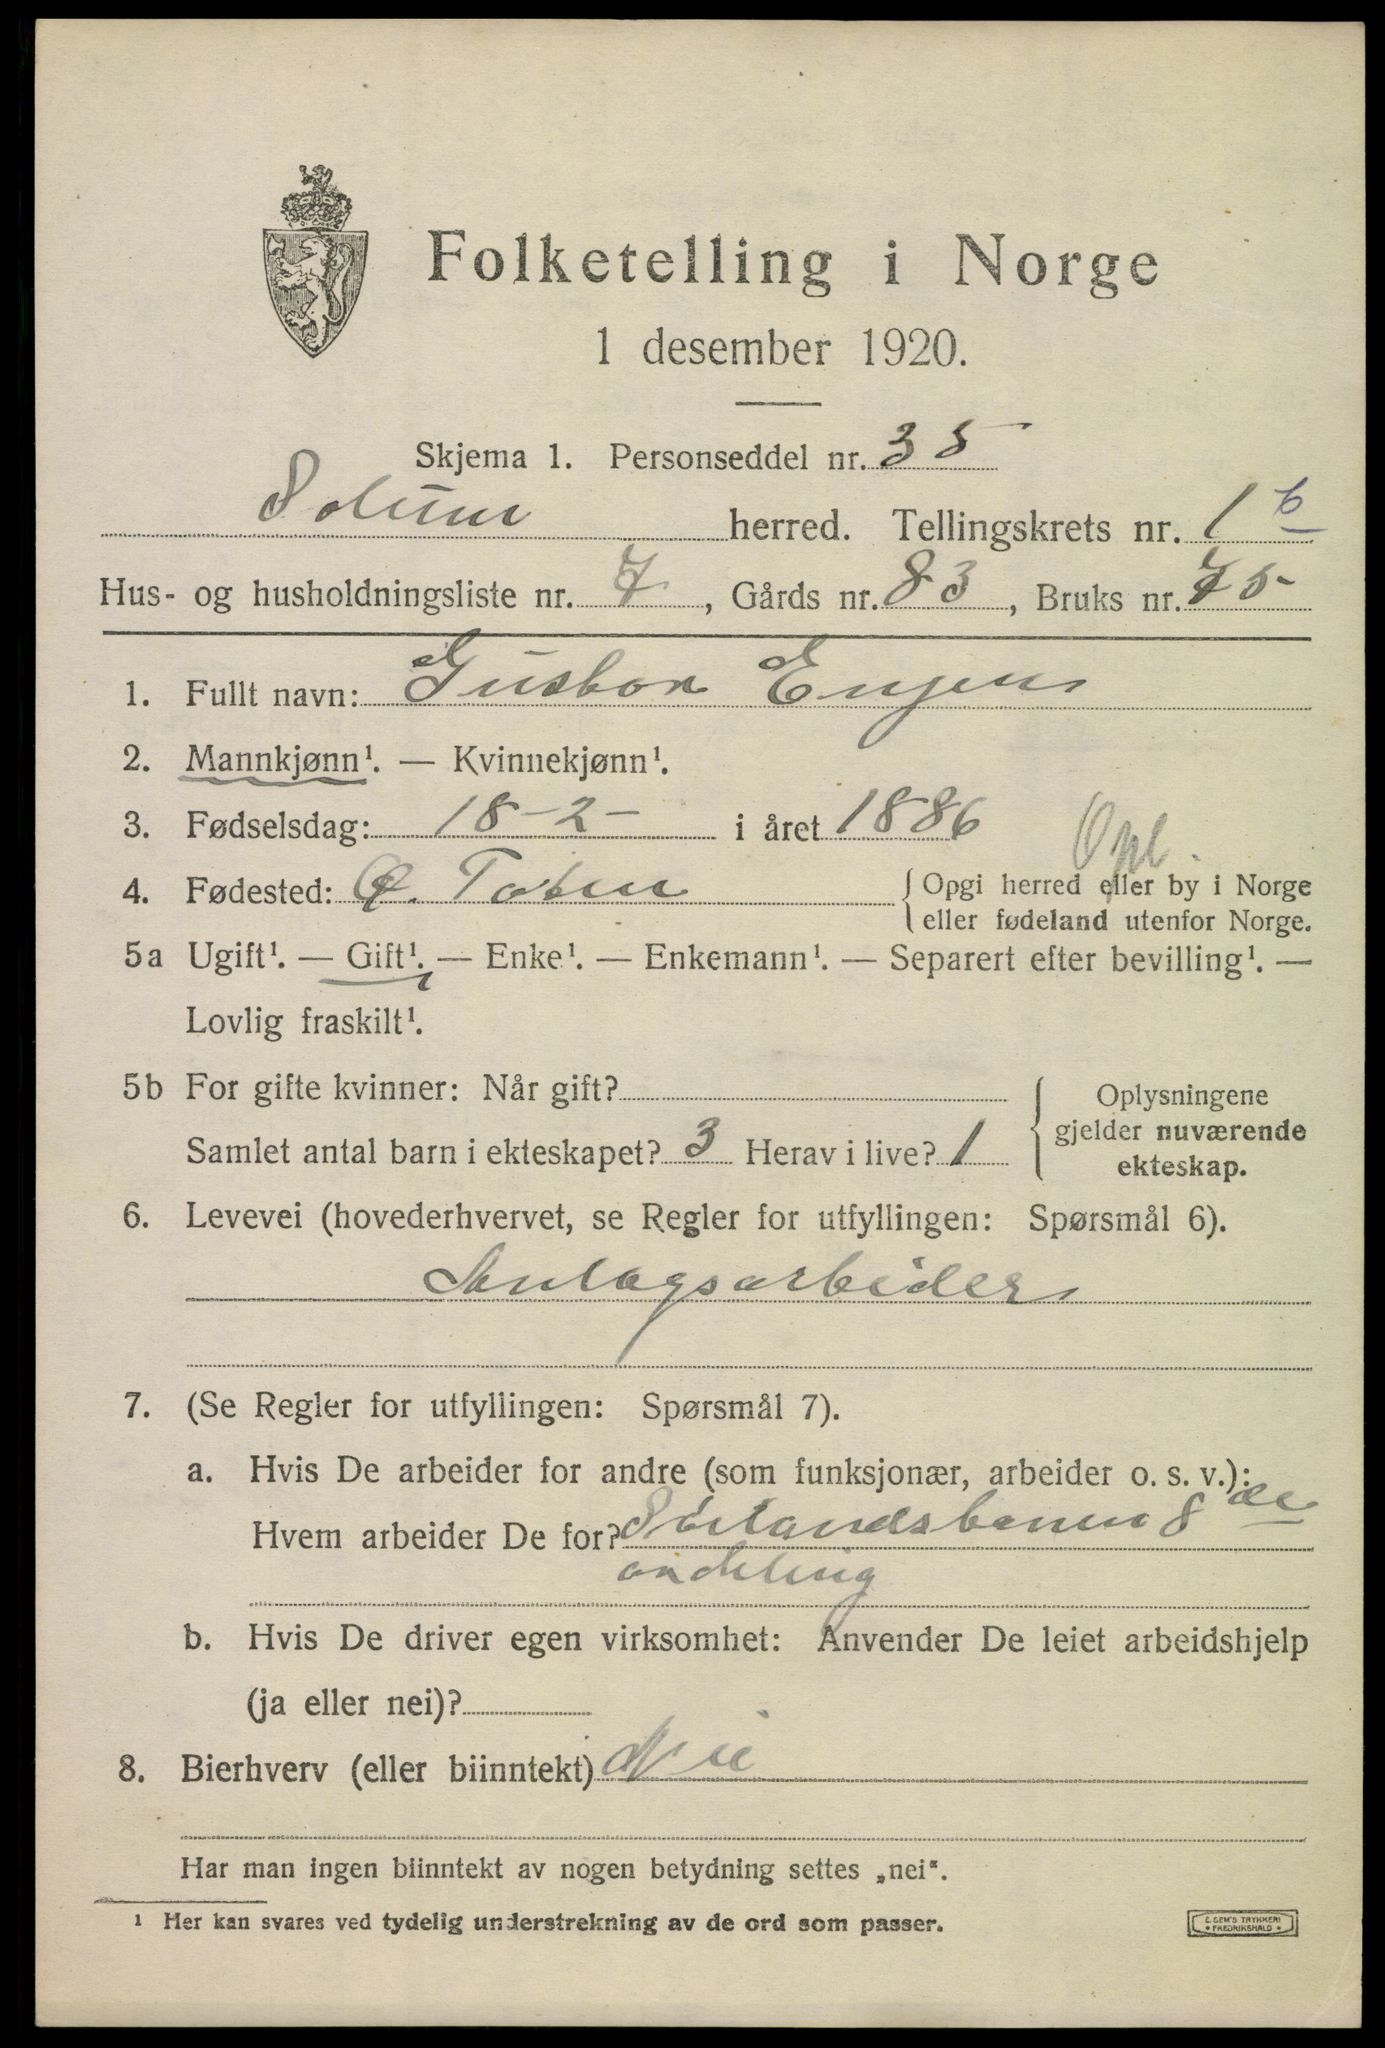 Folketelling i Norge
1 desember 1920.
Skjema 1. Personseddel nr. 35
Solum herred. Tellingskrets nr. 1 b
Hus- og husholdningsliste nr. 7, Gårds nr. 83, Bruks nr. 75
1. Fullt navn: Gustav Engen
2. Mannkjønn¹. — Kvinnekjønn¹.
3. Fødselsdag: 18-2- i året 1886
Opl.
4. Fødested: Ø. Toten { Opgi herred eller by i Norge
eller fødeland utenfor Norge.
5a Ugift¹. — Gift¹. — Enke¹. — Enkemann¹. — Separert efter bevilling¹. —
Lovlig fraskilt¹.
5b For gifte kvinner: Når gift?
Samlet antal barn i ekteskapet? 3 Herav i live? 1
{ Oplysningene
gjelder nuværende
ekteskap.
6. Levevei (hovederhvervet, se Regler for utfyllingen: Spørsmål 6).
Anlagsarbeider
7. (Se Regler for utfyllingen: Spørsmål 7).
a. Hvis De arbeider for andre (som funksjonær, arbeider o. s. v.):
Hvem arbeider De for? Sörlandsbanen 8de
avdeling
b. Hvis De driver egen virksomhet: Anvender De leiet arbeidshjelp
(ja eller nei)?
8. Bierhverv (eller biinntekt) Nei
Har man ingen biinntekt av nogen betydning settes „nei".
¹ Her kan svares ved tydelig understrekning av de ord som passer.
E. SEM'S TRYKKERI
FREDRIKSHALD